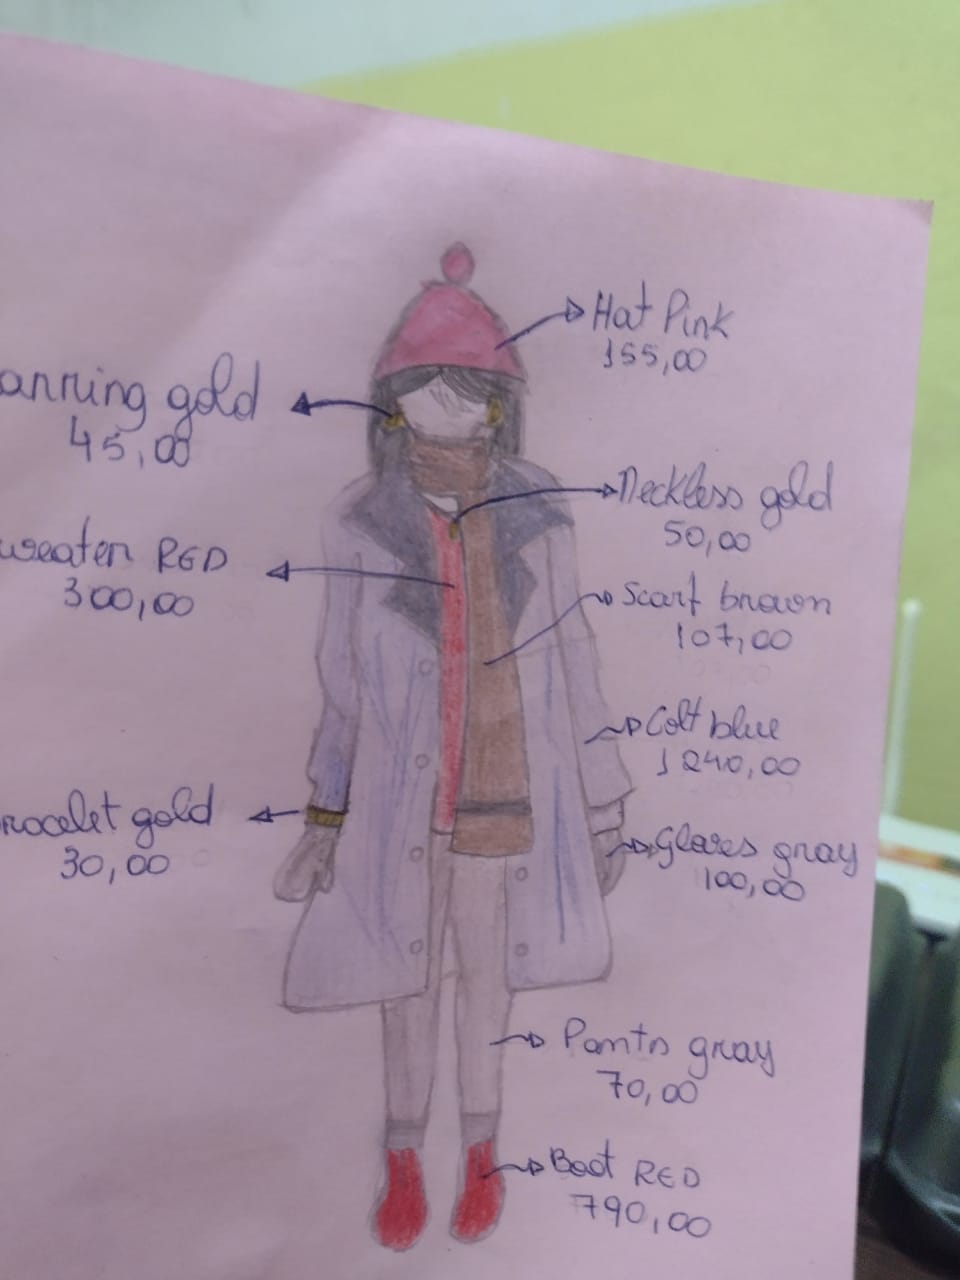 Hat Pink
155,00
anring gold
45,00
Neckless gold
50,00
weater RED
300,00
Scarf brown
107,00
Colt blue
1240,00
racelet gold
30,00
Gloves gray
100,00
Pants gray
70,00
Boot RED
790,00